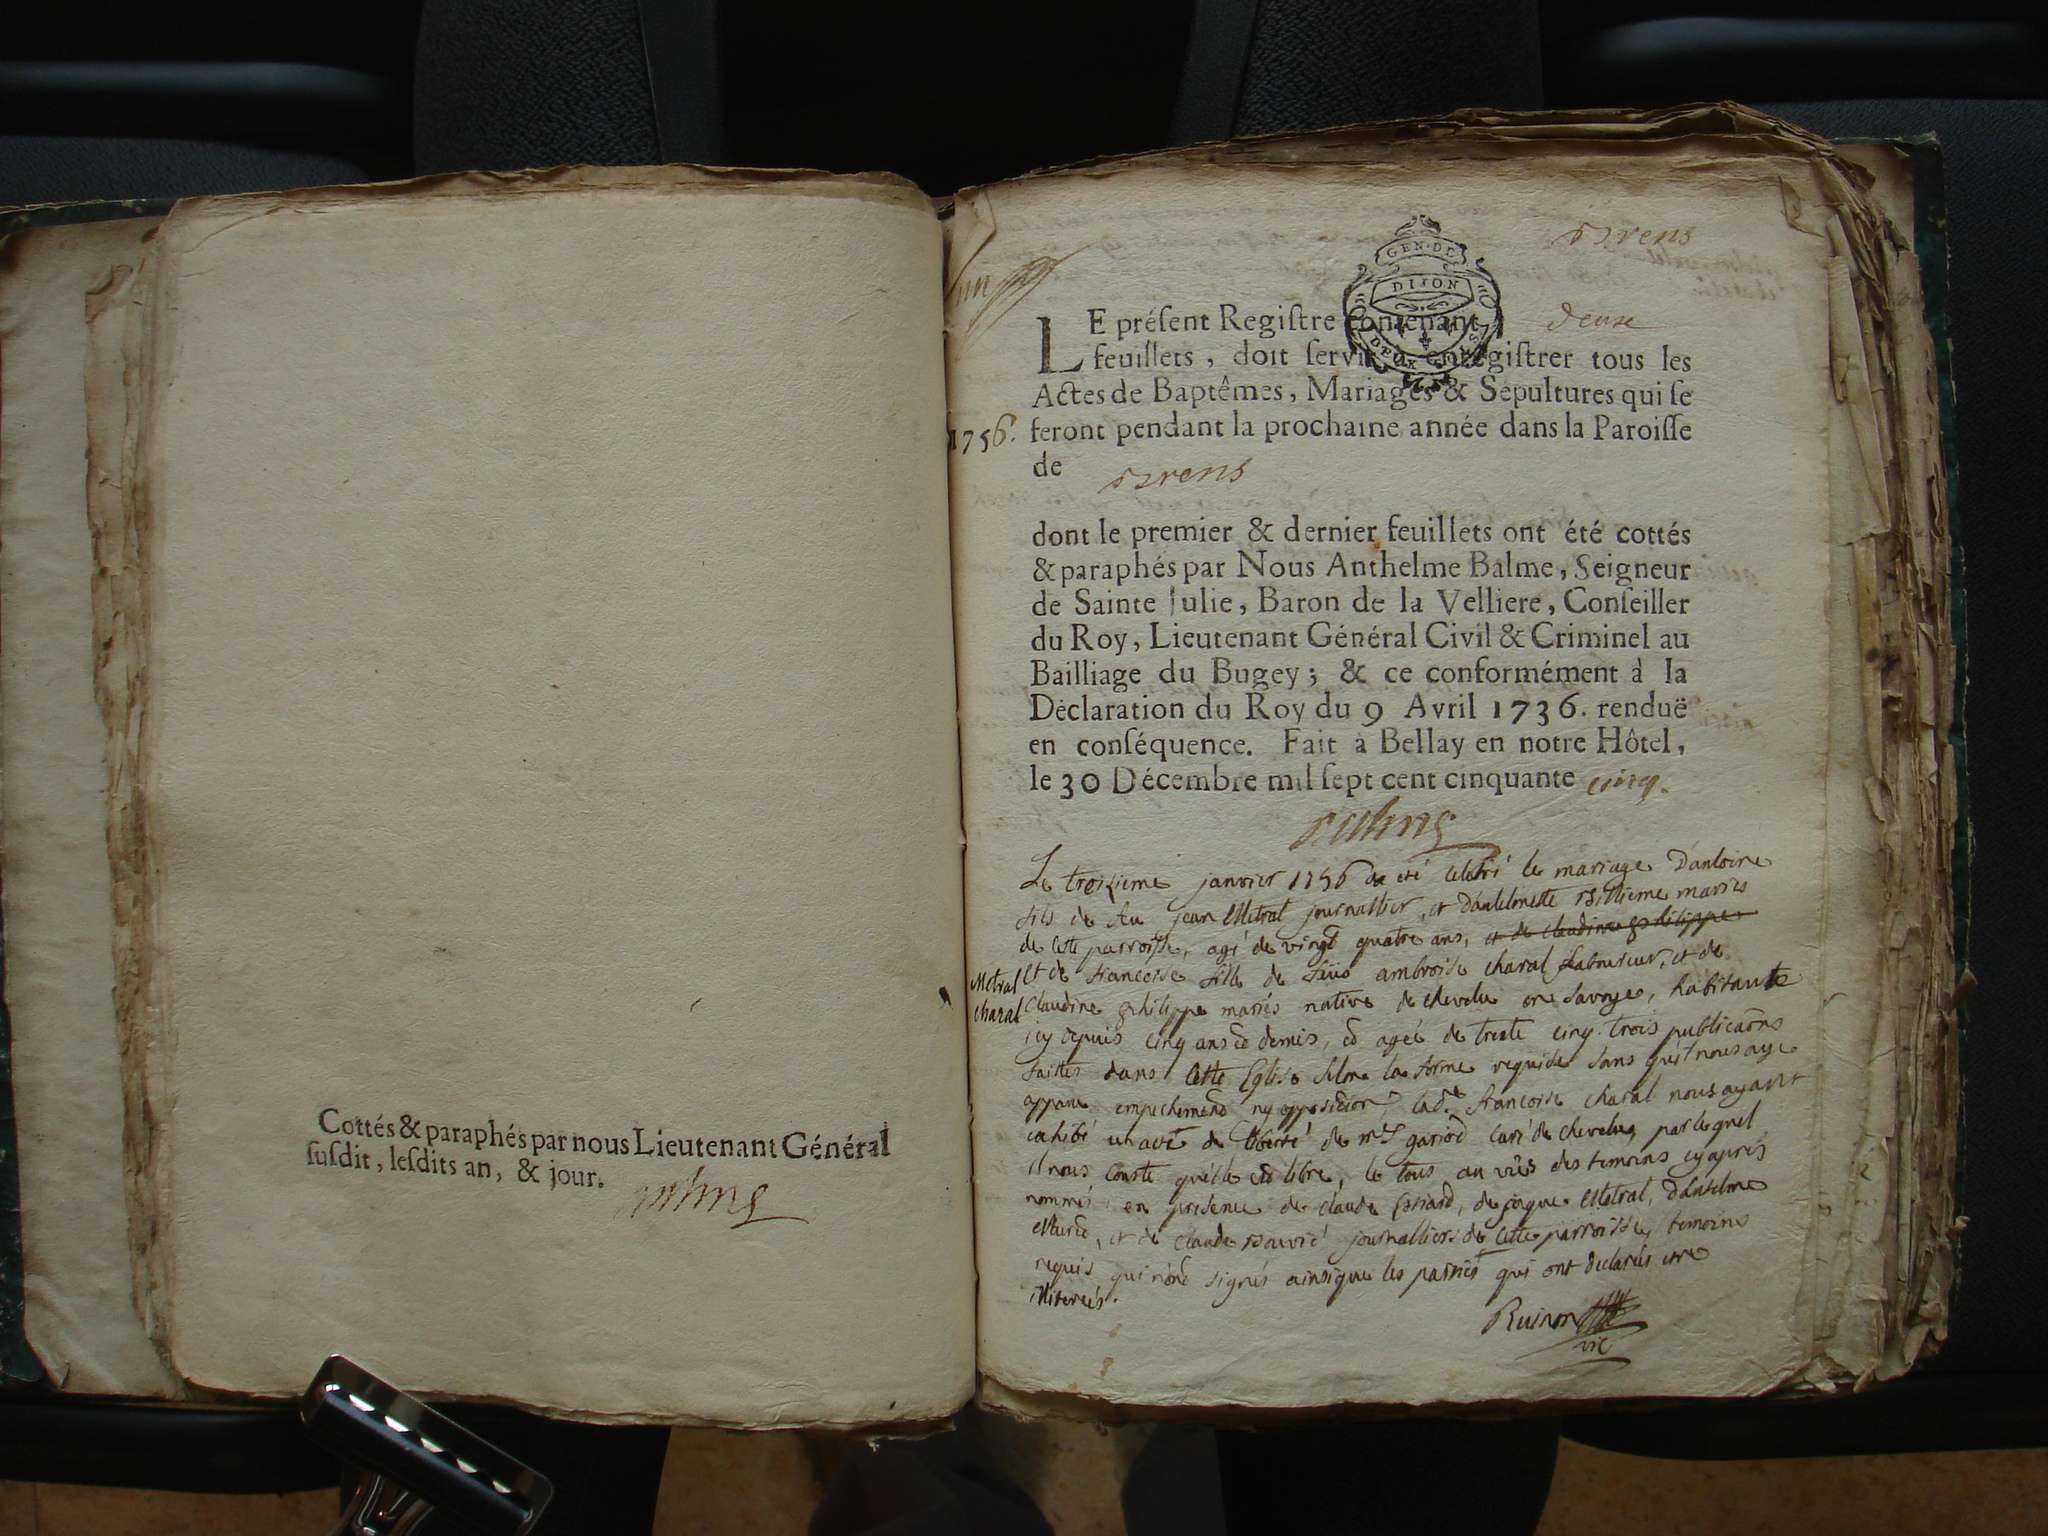 Cottés & paraphés par nous Lieutenant Général
ſuſdit, leſdits an, & jour.
un
GEN. DE
DIJON
DEUX
Brens
LE préſent Regiſtre contenant deux
feuillets, doit ſervir à enregiſtrer tous les
Actes de Baptêmes, Mariages & Sépultures qui ſe
1756. feront pendant la prochaine année dans la Paroiſſe
de Brens
dont le premier & dernier feuillets ont été cottés
& paraphés par Nous Anthelme Balme, Seigneur
de Sainte Julie, Baron de la Velliere, Conſeiller
du Roy, Lieutenant Général Civil & Criminel au
Bailliage du Bugey; & ce conformément à la
Déclaration du Roy du 9 Avril 1736. renduë
en conſéquence. Fait à Bellay en notre Hôtel,
le 30 Décembre mil ſept cent cinquante cinq.
Le troisieme janvier 1756 a eté celebré le mariage D'antoine
fils de feu jean Metral journallier, et D'antelmette Billieme mariés
de cette parroisse, agé de vingt quatre ans, et de claudine philippe
Metral
charal
et de francoise fille de feüs ambroise charal Laboureur, et de
Claudine philippe mariés native de chevelu en Savoye, habitante
icy depuis cinq ans et demis, et agée de trente cinq. trois publicaons
faittes dans cette Eglise selon la forme requise sans qu'il nous aye
apparu empechement ny opposition, lade. francoise charal nous ayant
exhibé un acte de liberté de mr. gariod curé de chevelu, par lequel
il nous conste qu'elle est libre, le tous au vûes des temoins cy après
nommés en presence de claude , de jaque Metral, D'antelme
, et de claude journalliers de cette parroisse, temoins
requis, qui n'ont signés ainsi que les parties qui ont declarées etre
illiterées.
vic